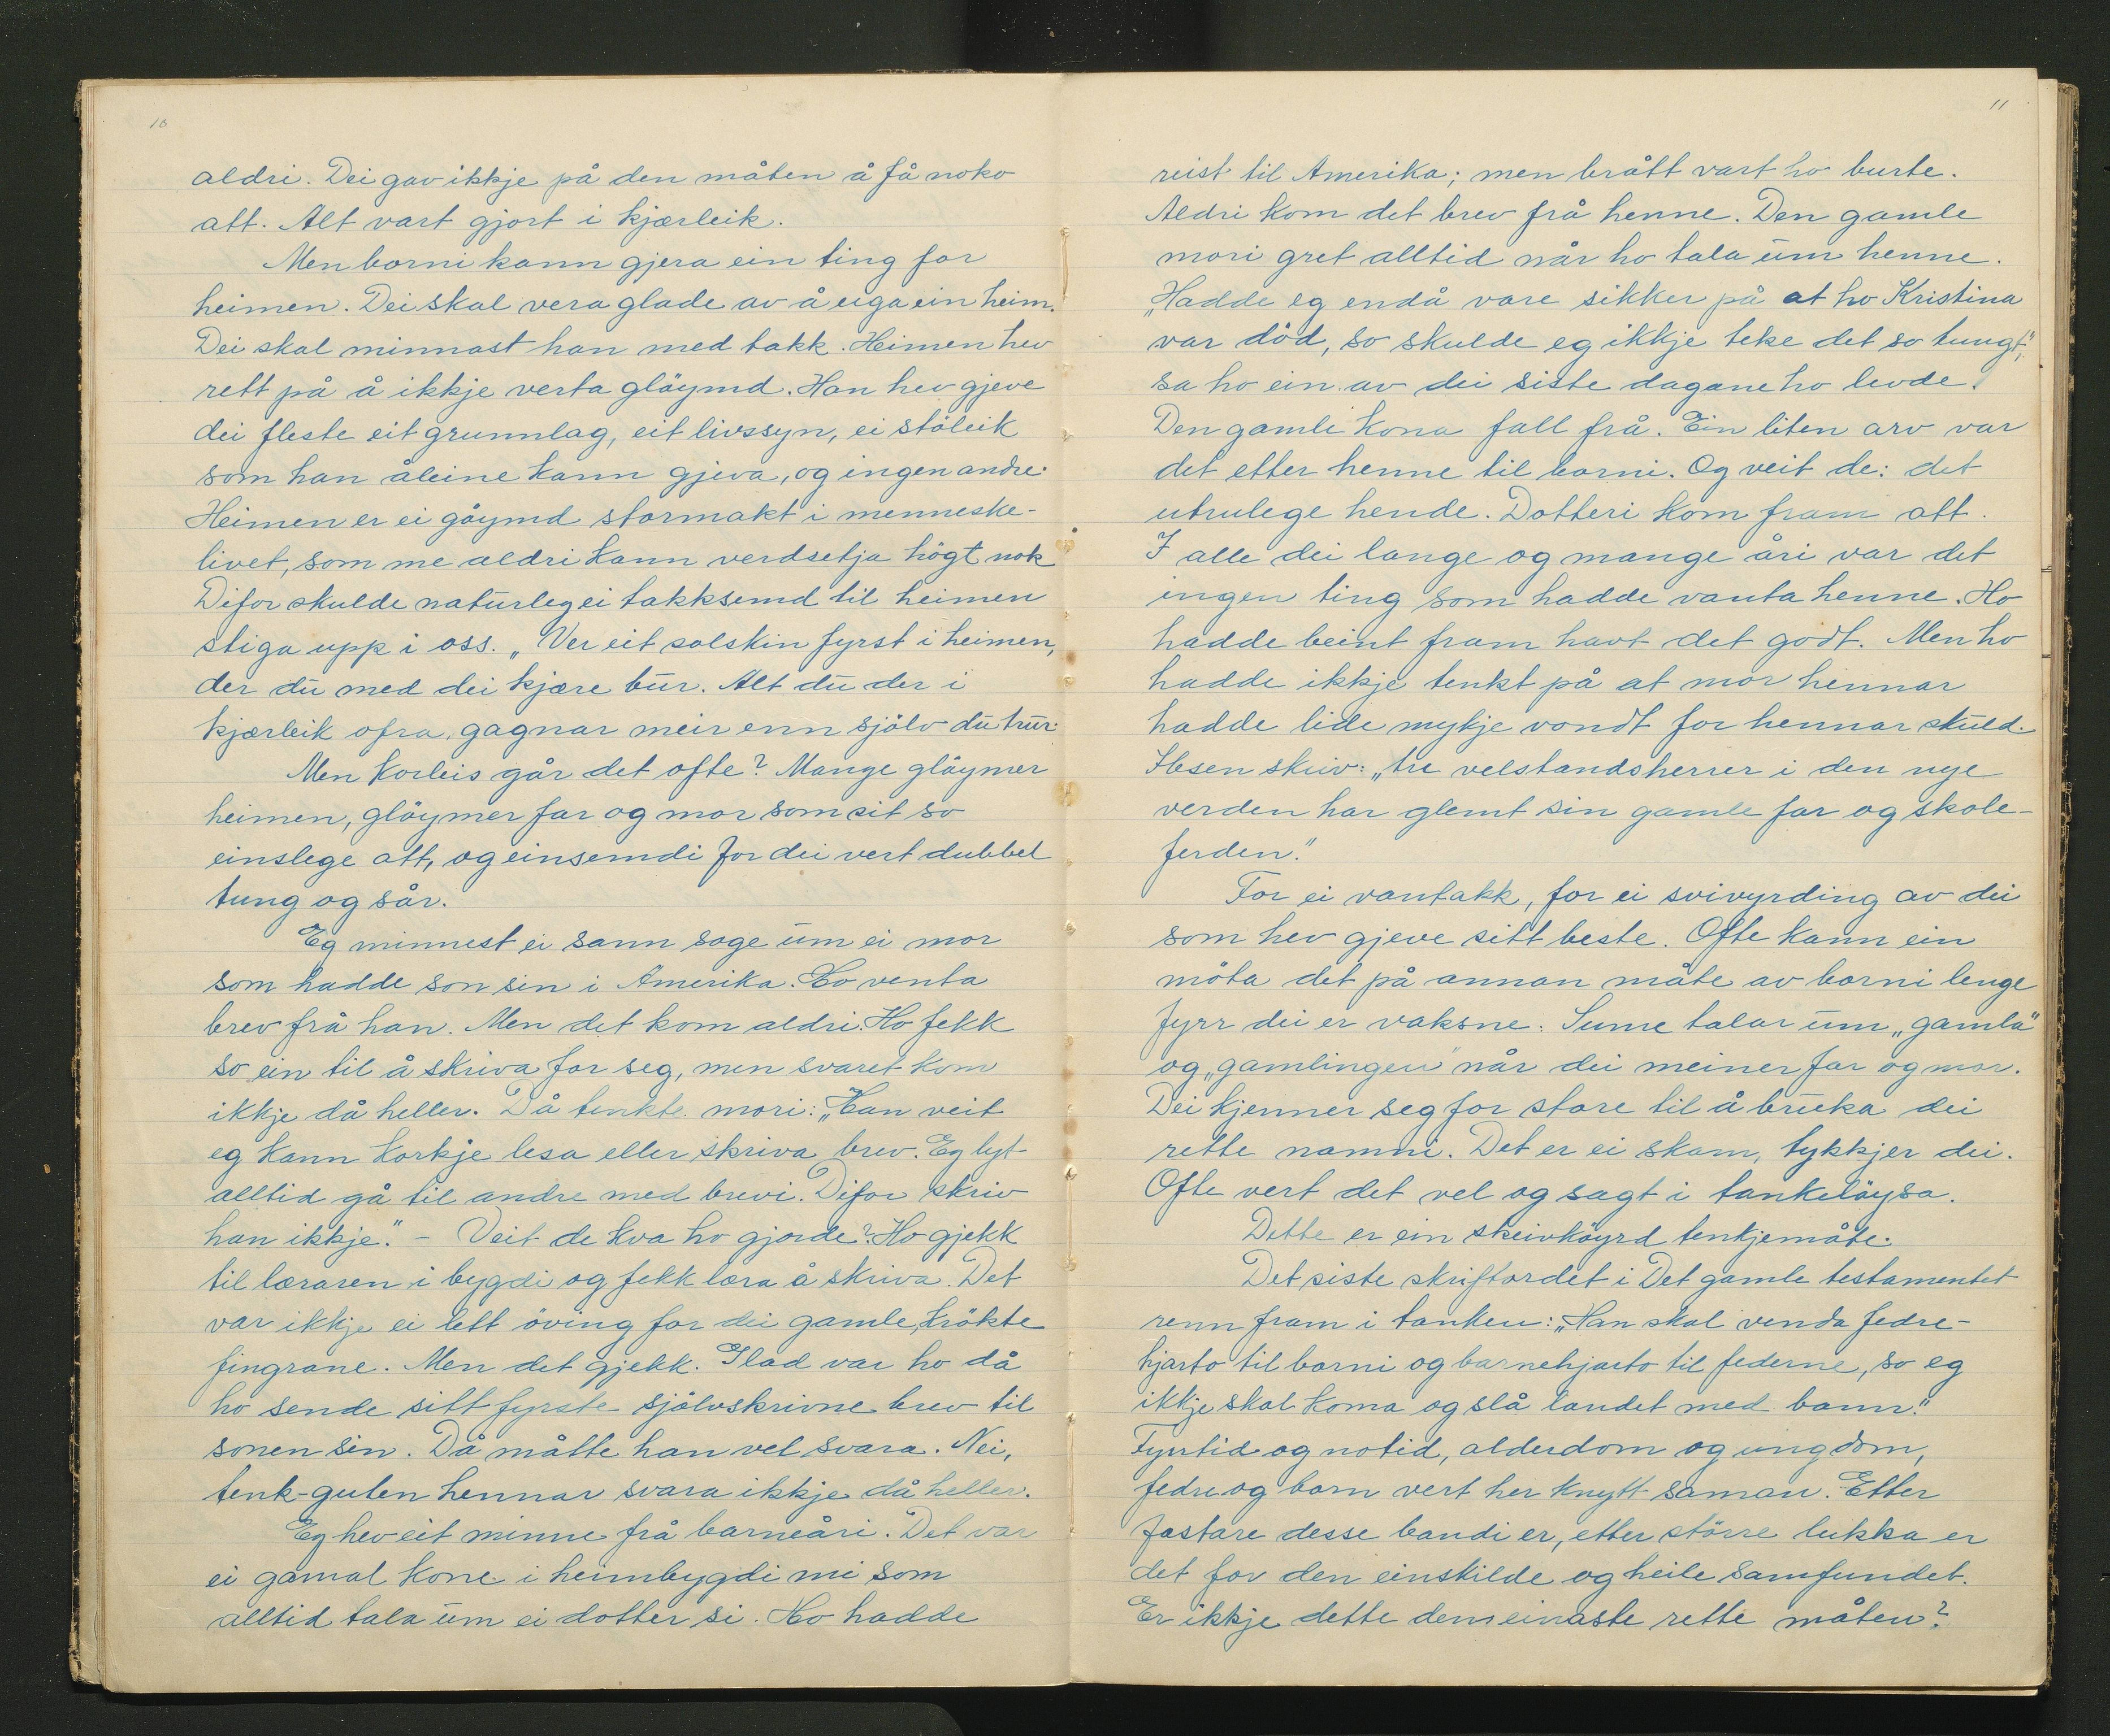 10
aldri. Dei gav ikkje på den måten å få noko
att. Alt vart gjort i kjærleik.
Men borni kann gjera ein ting for
heimen. Dei skal vera glade av å eiga ein heim.
Dei skal minnast han med takk. Heimen hev
rett på å ikkje verta glöymd. Han hev gjeve
dei fleste eit grunnlag, eit livssyn, ei stöleik
som han åleine kann gjeva, og ingen andre.
Heimen er ei göymd stormakt i menneske-
livet, som me aldri kann verdsetja högt nok
Difor skulde naturleg ei takksemd til heimen
stiga upp i oss. „Ver eit solskin fyrst i heimen,
der du med dei kjære bur. Alt du der i
kjærleik ofra, gagnar meir enn sjölv du trur.
Men korleis går det ofte? Mange glöymer
heimen, glöymer far og mor som sit so
einslege att, og einsemdi for dei vert dubbel
tung og sår.
Eg minnest ei sann soge um ei mor
som hadde son sin i Amerika. Ho venta
brev frå han. Men det kom aldri. Ho fekk
so ein til å skriva for seg, men svaret kom
ikkje då heller. Då tenkte mori: „Han veit
eg kann korkje lesa eller skriva brev. Eg lyt
alltid gå til andre med brevi. Difor skriv
han ikkje." - Veit de kva ho gjorde? Ho gjekk
til læraren i bygdi og fekk læra å skriva. Det
var ikkje ei lett öving for dei gamle, krökte
fingrane. Men det gjekk. Glad var ho då
ho sende sitt fyrste sjölvskrivne brev til
sonen sin. Då måtte han vel svara. Nei,
tenk-guten hennar svara ikkje då heller.
Eg hev eit minne frå barneåri. Det var
ei gamal kone i heimbygdi mi som
alltid tala um ei dotter si. Ho hadde
11
reist til Amerika; men brått vart ho burte.
Aldri kom det brev frå henne. Den gamle
mori gret alltid når ho tala um henne.
„Hadde eg endå vore sikker på at ho Kristina
var död, so skulde eg ikkje teke det so tungt",
sa ho ein av dei siste dagane ho levde.
Den gamle kona fall frå. Ein liten arv var
det etter henne til borni. Og veit de: det
utrulege hende. Dotteri kom fram att.
I alle dei lange og mange åri var det
ingen ting som hadde vanta henne. Ho
hadde beint fram havt det godt. Men ho
hadde ikkje tenkt på at mor hennar
hadde lide mykje vondt for hennar skuld.
Ibsen skriv: „tre velstandsherrer i den nye
verden har glemt sin gamle far og skole-
ferden."
For ei vantakk, for ei svivyrding av dei
som hev gjeve sitt beste. Ofte kann ein
möta det på annan måte av borni lenge
fyrr dei er vaksne. Sume talar um „gamla"
og „gamlingen" når dei meiner far og mor.
Dei kjenner seg for store til å bruka dei
rette namni. Det er ei skam, tykkjer dei.
Ofte vert det vel og sagt i tankelöysa.
Dette er ein skeivköyrd tenkjemåte.
Det siste skriftordet i Det gamle testamentet
renn fram i tanken: „Han skal venda fedre-
hjarto til borni og barnehjarto til federne, so eg
ikkje skal koma og slå landet med bann."
Fyrrtid og notid, alderdom og ungdom,
fedre og born vert her knytt saman. Etter
fastare desse bandi er, etter större lukka er
det for den einskilde og heile samfundet.
Er ikkje dette den einaste rette måten?